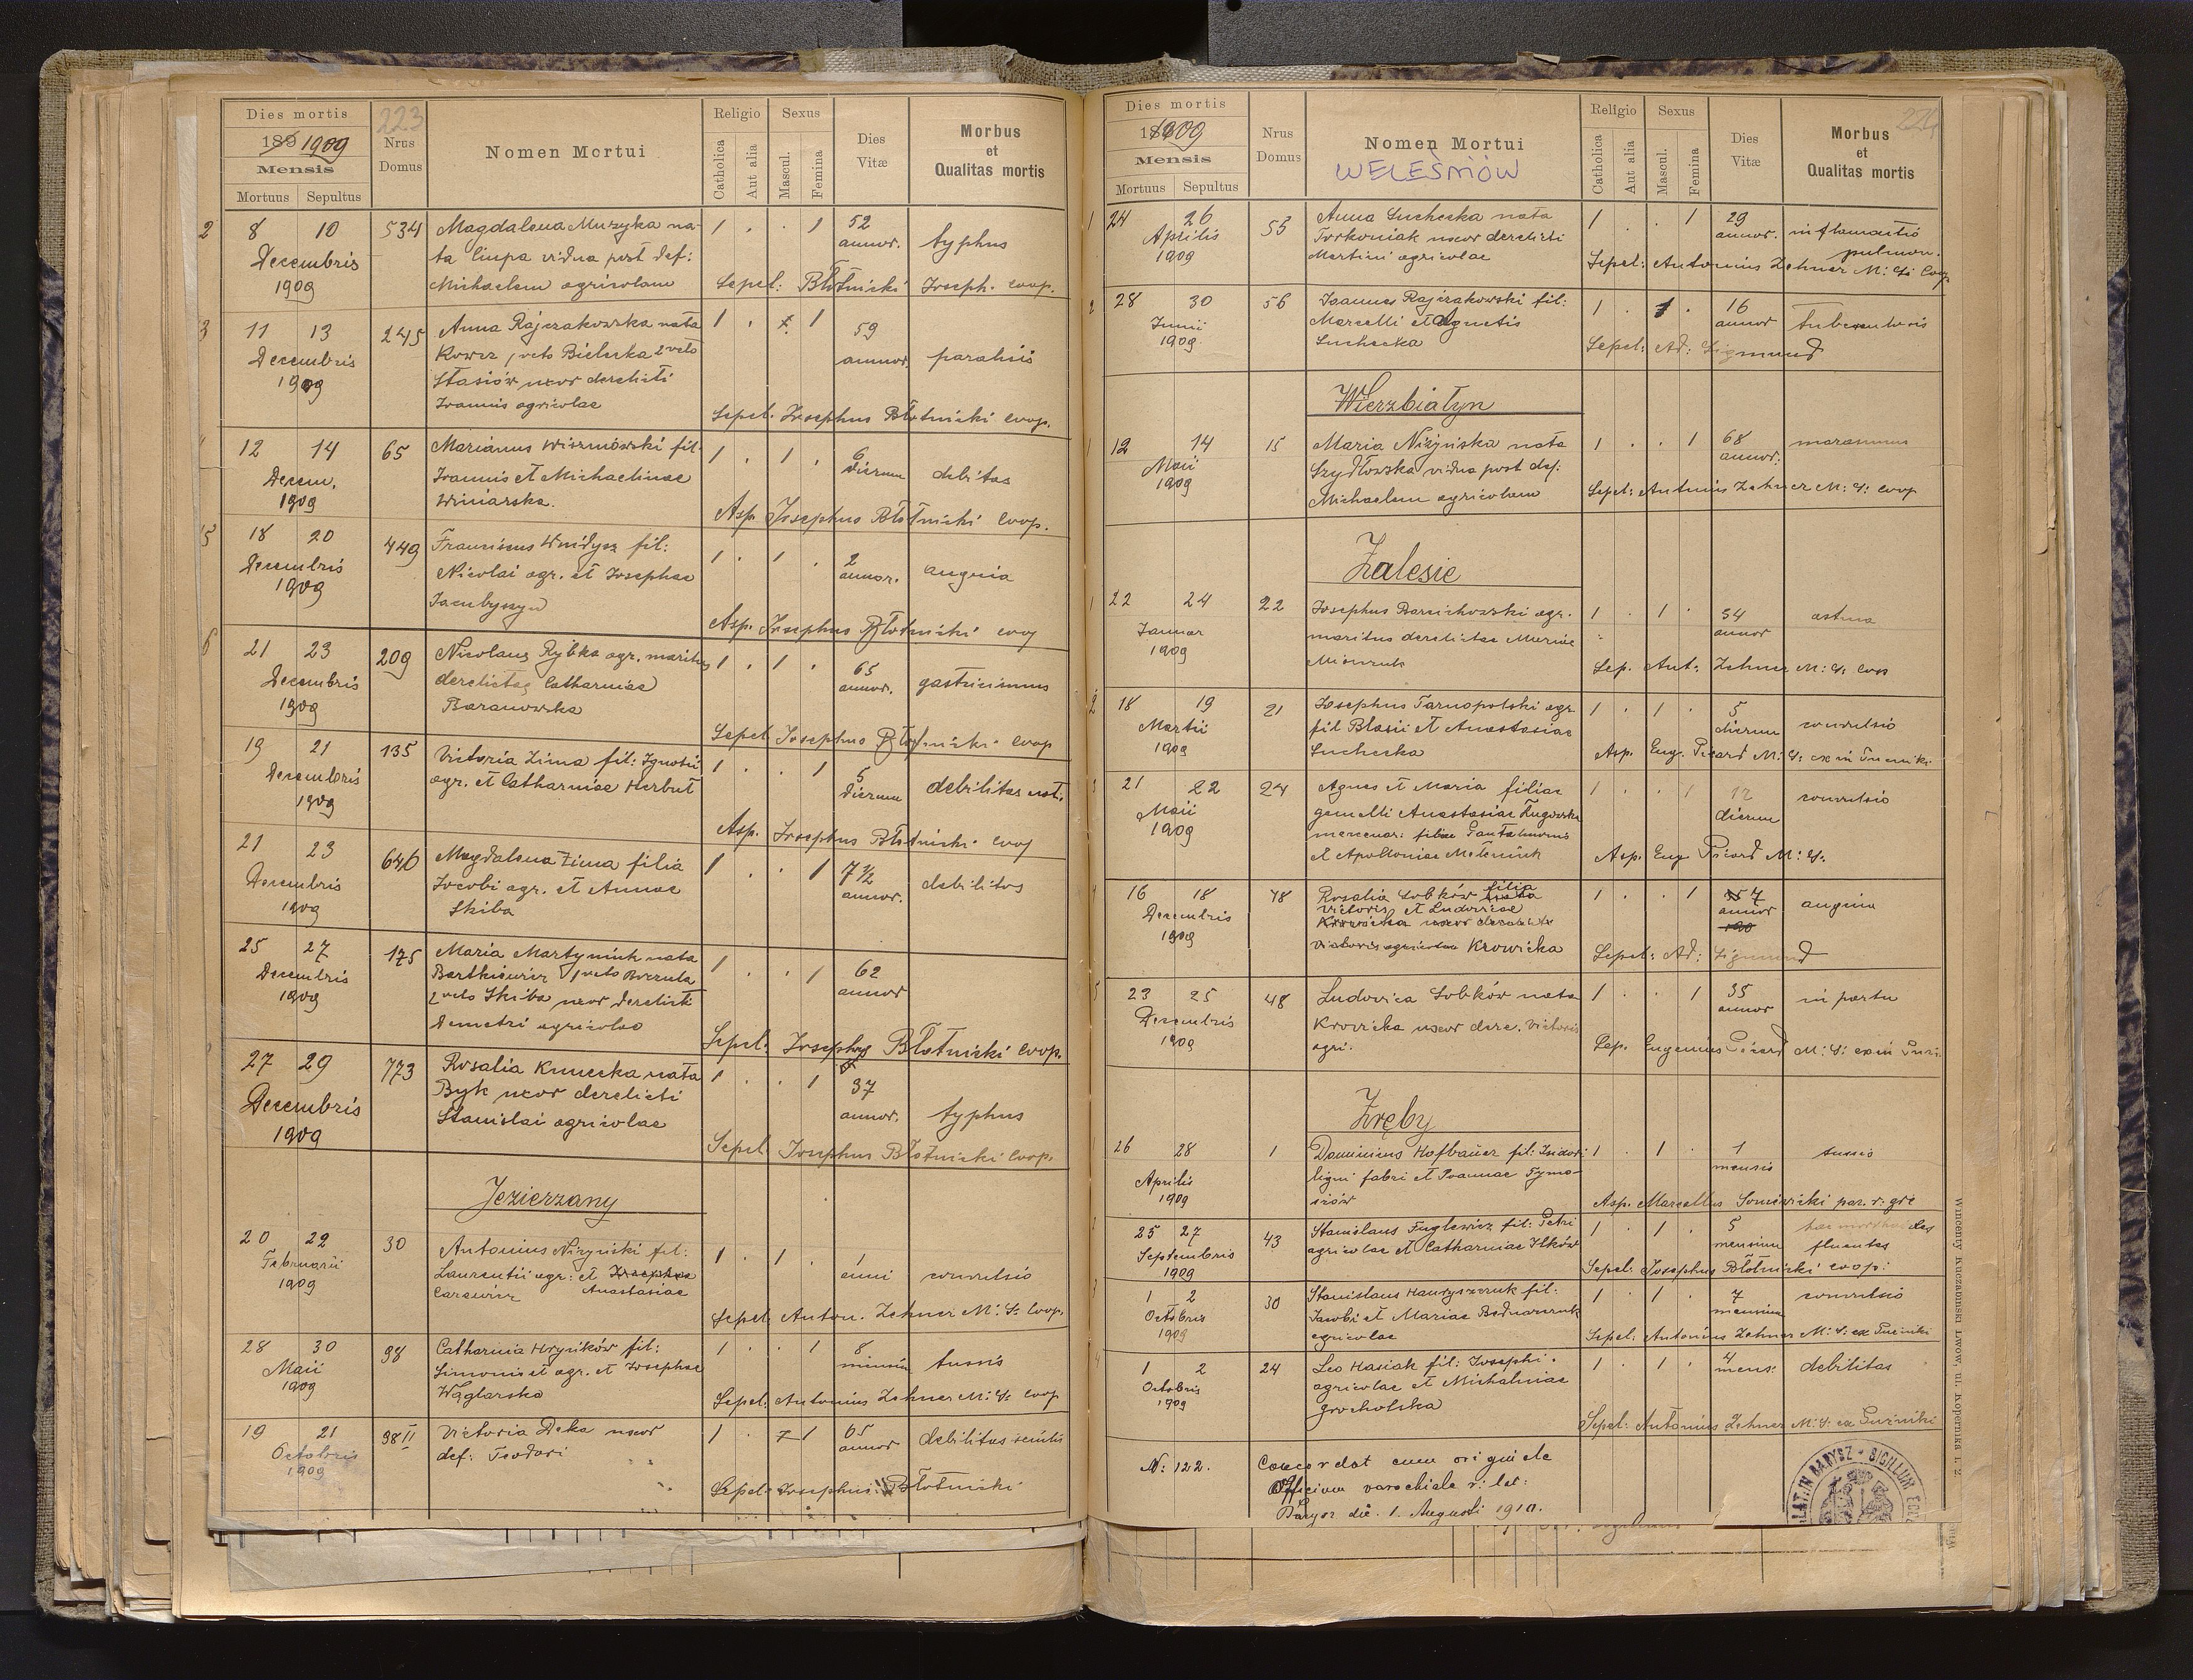 Dies mortis
189 1909
Mensis
Mortuus Sepultus
223
Nrus
Domus
Nomen Mortui
Religio
Catholica
Aut alia
Sexus
Mascul.
Femina
Dies
Vitæ
Morbus
et
Qualitas mortis
2 8 10 534 Magdalena Muzyka na- 1 . . 1 52
Decembris ta Ciupa vidua post def: annor. typhus
1909 Michaelem agricolam Sepel: Błotnicki Joseph. coop.
3 11 13 245 Anna Rajczakowska nata 1 . 1 59
Decembris Kowcz 1 voto Bielecka 2 voto annor. paralisis
1909 Stasiów uxor derelicti
Joannis agricolae Sepel. Josephus Błotnicki coop.
12 14 65 Marianus Wiszniowski fil. 1 . 1 . 6
Decem. Joannis et Michaelinae dierum debitas
1909 Winiarska. Asp. Josephus Błotnicki coop.
5 18 20 449 Franciscus Wnidysz fil: 1 . 1 . 2
Decembris Nicolai agr. et Josephae annor. angina
1909 Asp. Josephus Błotnicki coop
6 21 23 209 Nicolaus Rybka agr. maritus 1 . 1 . 65
Decembris derelictae Catharinae annor. gastricismus
1909 Baranowska Sepel Josephus Błotnicki coop
19 21 135 Victoria Zima fil: Ignatii 1 . . 1 5
Decembris agr. et Catharinae Herbut dierum debilitas nat.
1909 Asp. Josephus Błotnicki coop
21 23 646 Magdalena Zima filia 1 . . 1 7 1/2
Decembris Jacobi agr. et Annae annor. debilitas
1909 Skiba
25 27 175 Maria Martyniuk nata 1 . . 1 62
Decembris Bartkiewicz 1 voto annor
1909 2 voto Skiba uxor derelicti
Demetri agricolae Sepel. Josephus Błotnicki coop.
27 29 773 Rosalia Kunecka nata 1 . . 1 37
Decembris Byk uxor derelicti annor. typhus
1909 Stanislai agricolae Sepel. Josephus Błotnicki coop.
Jezierzany
20 22 30 Antonius Niżyński fil: 1 . 1 . 1
Februarii Laurentii agr: et Josephae anni convulsio
1909 Anastasiae Sepel: Anton. Zehner M: S: Coop.
28 30 98 Catharina Hryńków fil: 1 . . 1 8
Maii Simonis et agr. et Josephae tussis
1909 Węglarska Sepel: Antonius Zehner M: S: coop
19 21 38 II Victoria Deka uxor 1 . 1 65
Octobris def: Teodori annor debilitas senilis
1909 Sepel: Josephus Błotnicki
Dies mortis
1909
Mensis
Mortuus Sepultus
Nrus
Domus
Nomen Mortui
WELEŚNIÓW
Religio
Catholica
Aut alia
Sexus
Mascul.
Femina
Dies
Vitæ
224
Morbus
et
Qualitas mortis
1 24 26 53 Anna Suchecka nata 1 . . 1 29 inflamatio
Aprilis Torkoniak uxor derelicti annor. pulmon.
1909 Martini agricolae Sepel: Antonius Zehner M: S: Coop
2 28 30 56 Joannes Rajczakowski fil: 1 . 1 . 16
Junii Marcelli et Agnetis annor tuberculosis
1909 Suchecka Sepel: Ad: Zigmund
Wierzbiatyn
1 12 14 15 Maria Niżyńska nata 1 . . 1 68 marasmus
Maii Szydłowska vidua post def: annor.
1909 Michaelem agricolam Sepel: Antonius Zehner M: S: coop
Zalesie
1 22 24 22 Josephus Barcichowski agr. 1 . 1 . 54 astma
Januar maritus derelictae Mariae annor
1909 Sep. Ant: Zehner M: S: Coop
2 18 19 21 Josephus Tarnopolski agr 1 . 1 . 5
Martii fil Blasii et Anastasiae dierum convulsio
1909 Suchecka Asp. Eug. Picard M: S:
3 21 22 24 Agnes et Maria filiae 1 . . 1 12 convulsio
Maii gemelli Anastasiae Ługowska dierum
1909 mercenar: filiae Pantaleonis
et Apolloniae Meleniuk Asp. Eug. Picard M: S:
4 16 18 48 Rosalia Sobków filia nata 1 . . 1 7 angina
Decembris Victoris et Ludovicae annor
1909 Krowicka uxor derelicta
Victoris agricolae Krowicka Sepel: Ad: Zigmund
5 23 25 48 Ludovica Sobków nata 1 . . 1 35 in partu
Decembris Krowicka uxor dere. Victoris annor
1909 agri. Sep. Eugenius Picard M: S:
Zręby
1 26 28 1 Dominicus Hofbauer fil: Isidori 1 . 1 . 1 tussis
Aprilis ligni fabri et Joannae Tymo- mensis
1909 siów Asp. Marcellus par. r: gr:
2 25 27 43 Stanislaus Fuglewicz fil: Petri 1 . 1 . 5
Septembris agricolae et Catharinae Ilków mensium fluentes
1909 Sepel: Josephus Błotnicki coop:
3 1 2 30 Stanislaus Hawryszczuk fil: 1 . 1 . 7 convulsio
Octobris Jacobi et Mariae Bednarczuk mensium
1909 agricolae Sepel: Antonius Zehner M: S: ex Puźniki
4 1 2 24 Leo Hasiak fil: Josephi 1 . 1 . 4 debilitas
Octobris agricolae et Michalinae mens:
1909 Grocholska Sepel: Antonius Zehner M: S: ex Puźniki
N: 122. Concordat cum originale
Officium parochiale r: lat:
Barysz die. 1. Augusti 1910.
LAT. IN BARYSZ * SIGILLUM ECCL
Wincenty Kuczabiński Lwów, ul. Kopernika l. 2.